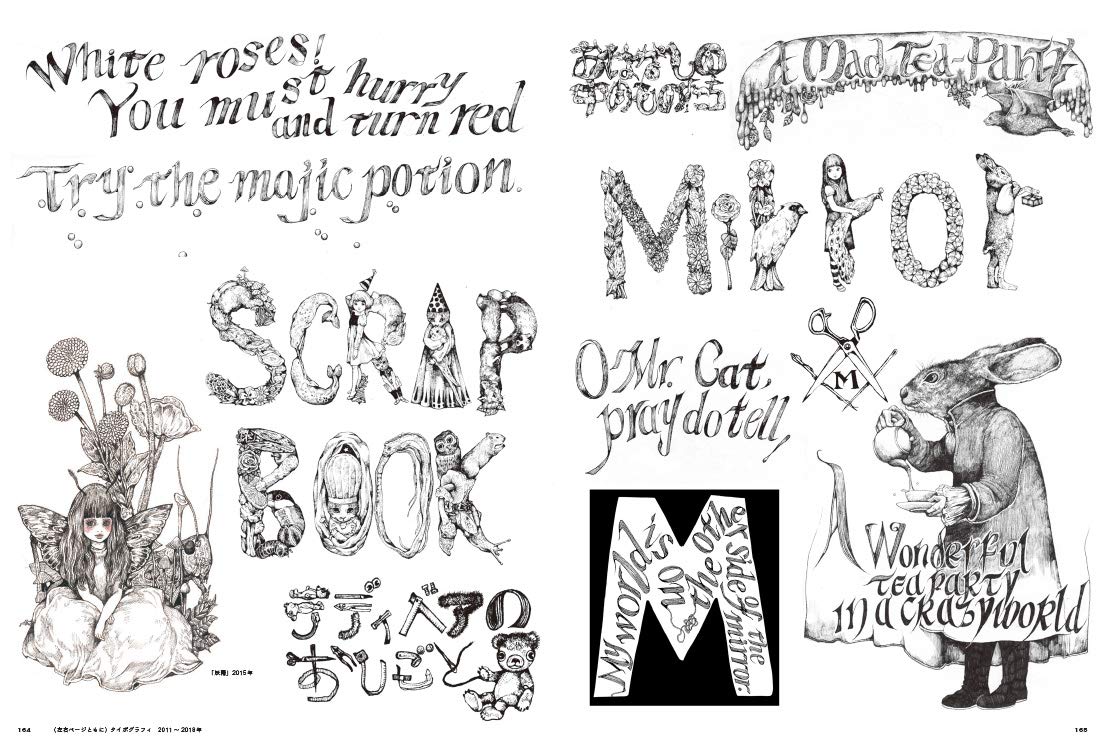 White roses!
You must hurry
and turn red
Try the majic potion.
SCRAP
BOOK
テディベアの
おしごと
「妖精」2015年
164 （左右ページともに）タイポグラフィ 2011〜2018年
A Mad Tea-Party
Mirror
O Mr. Cat,
pray do tell,
M
My world
is on
the other side of the mirror.
A Wonderful
tea party
in a crazy world
165